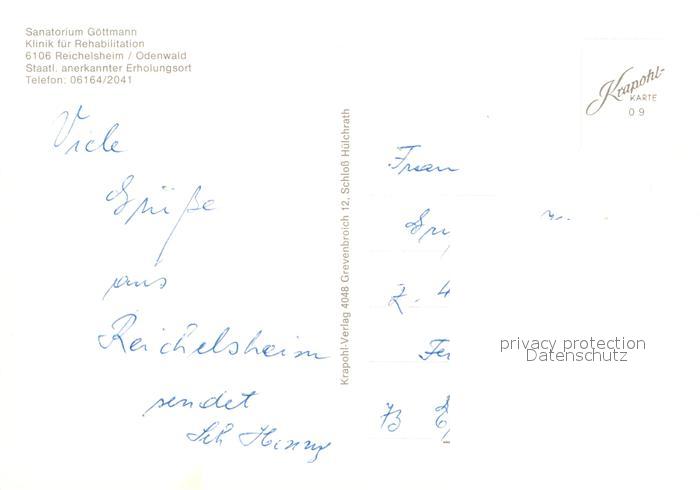 Sanatorium Göttmann
Klinik für Rehabilitation
6106 Reichelsheim / Odenwald
Staatl. anerkannter Erholungsort
Telefon: 06164/2041
Krapohl-
KARTE
09
Viele
Grüße
aus
Reichelsheim
sendet
Krapohl-Verlag 4048 Grevenbroich 12, Schloß Hülchrath
Frau
privacy protection
Datenschutz